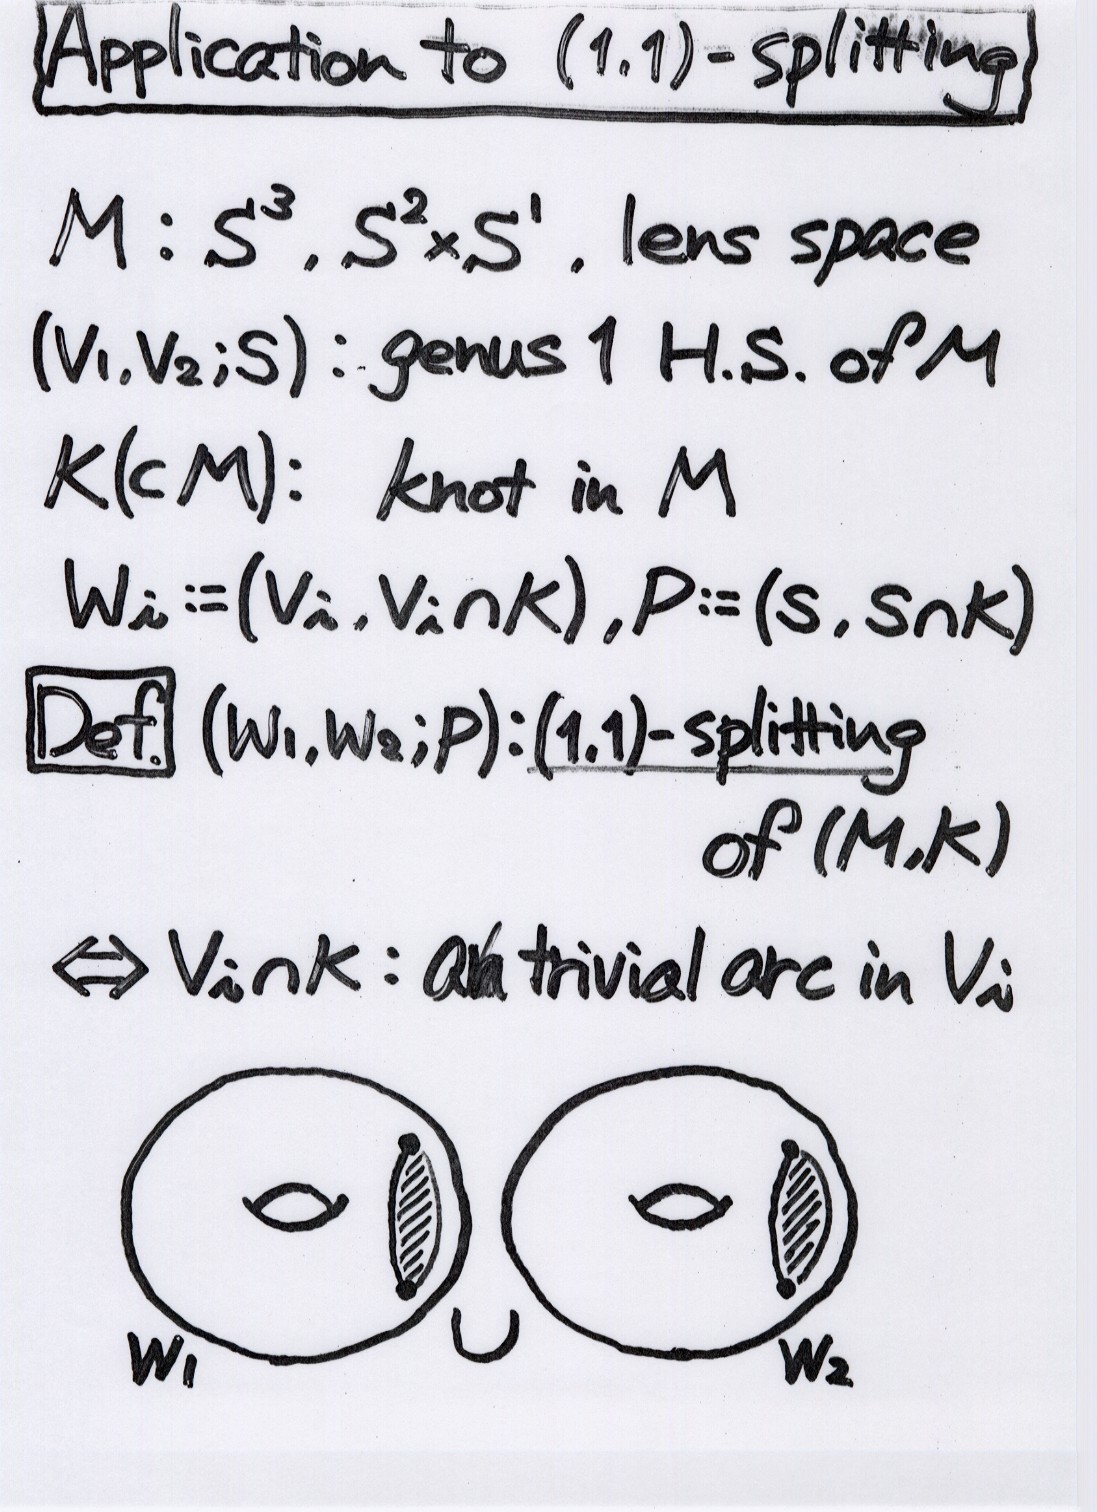 Application to (1.1)-splitting
M : S³, S²×S¹, lens space
(V₁.V₂;S) : genus 1 H.S. of M
K(⊂M): knot in M
Wi:=(Vi, Vi∩K), P:=(S, S∩K)
Def. (W₁.W₂;P):(1.1)-splitting
of (M,K)
⇔ Vi∩K : a trivial arc in Vi
∪
W₁ W₂